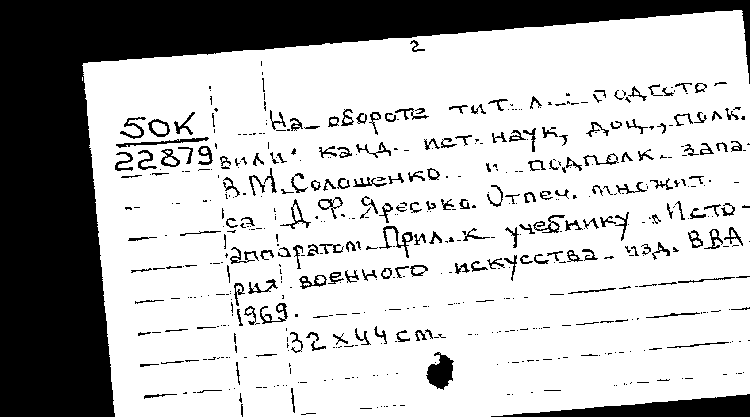 2
50К
22879
На обороте тит. л.: подгото-
вили: канд. ист. наук, доц., полк.
В.М. Солошенко и подполк. запа-
са Д.Ф. Яресько. Отпеч. множит.
аппаратом. Прил. к учебнику "Исто-
рия военного искусства. изд. ВВА
1969.
32 x 44 см.